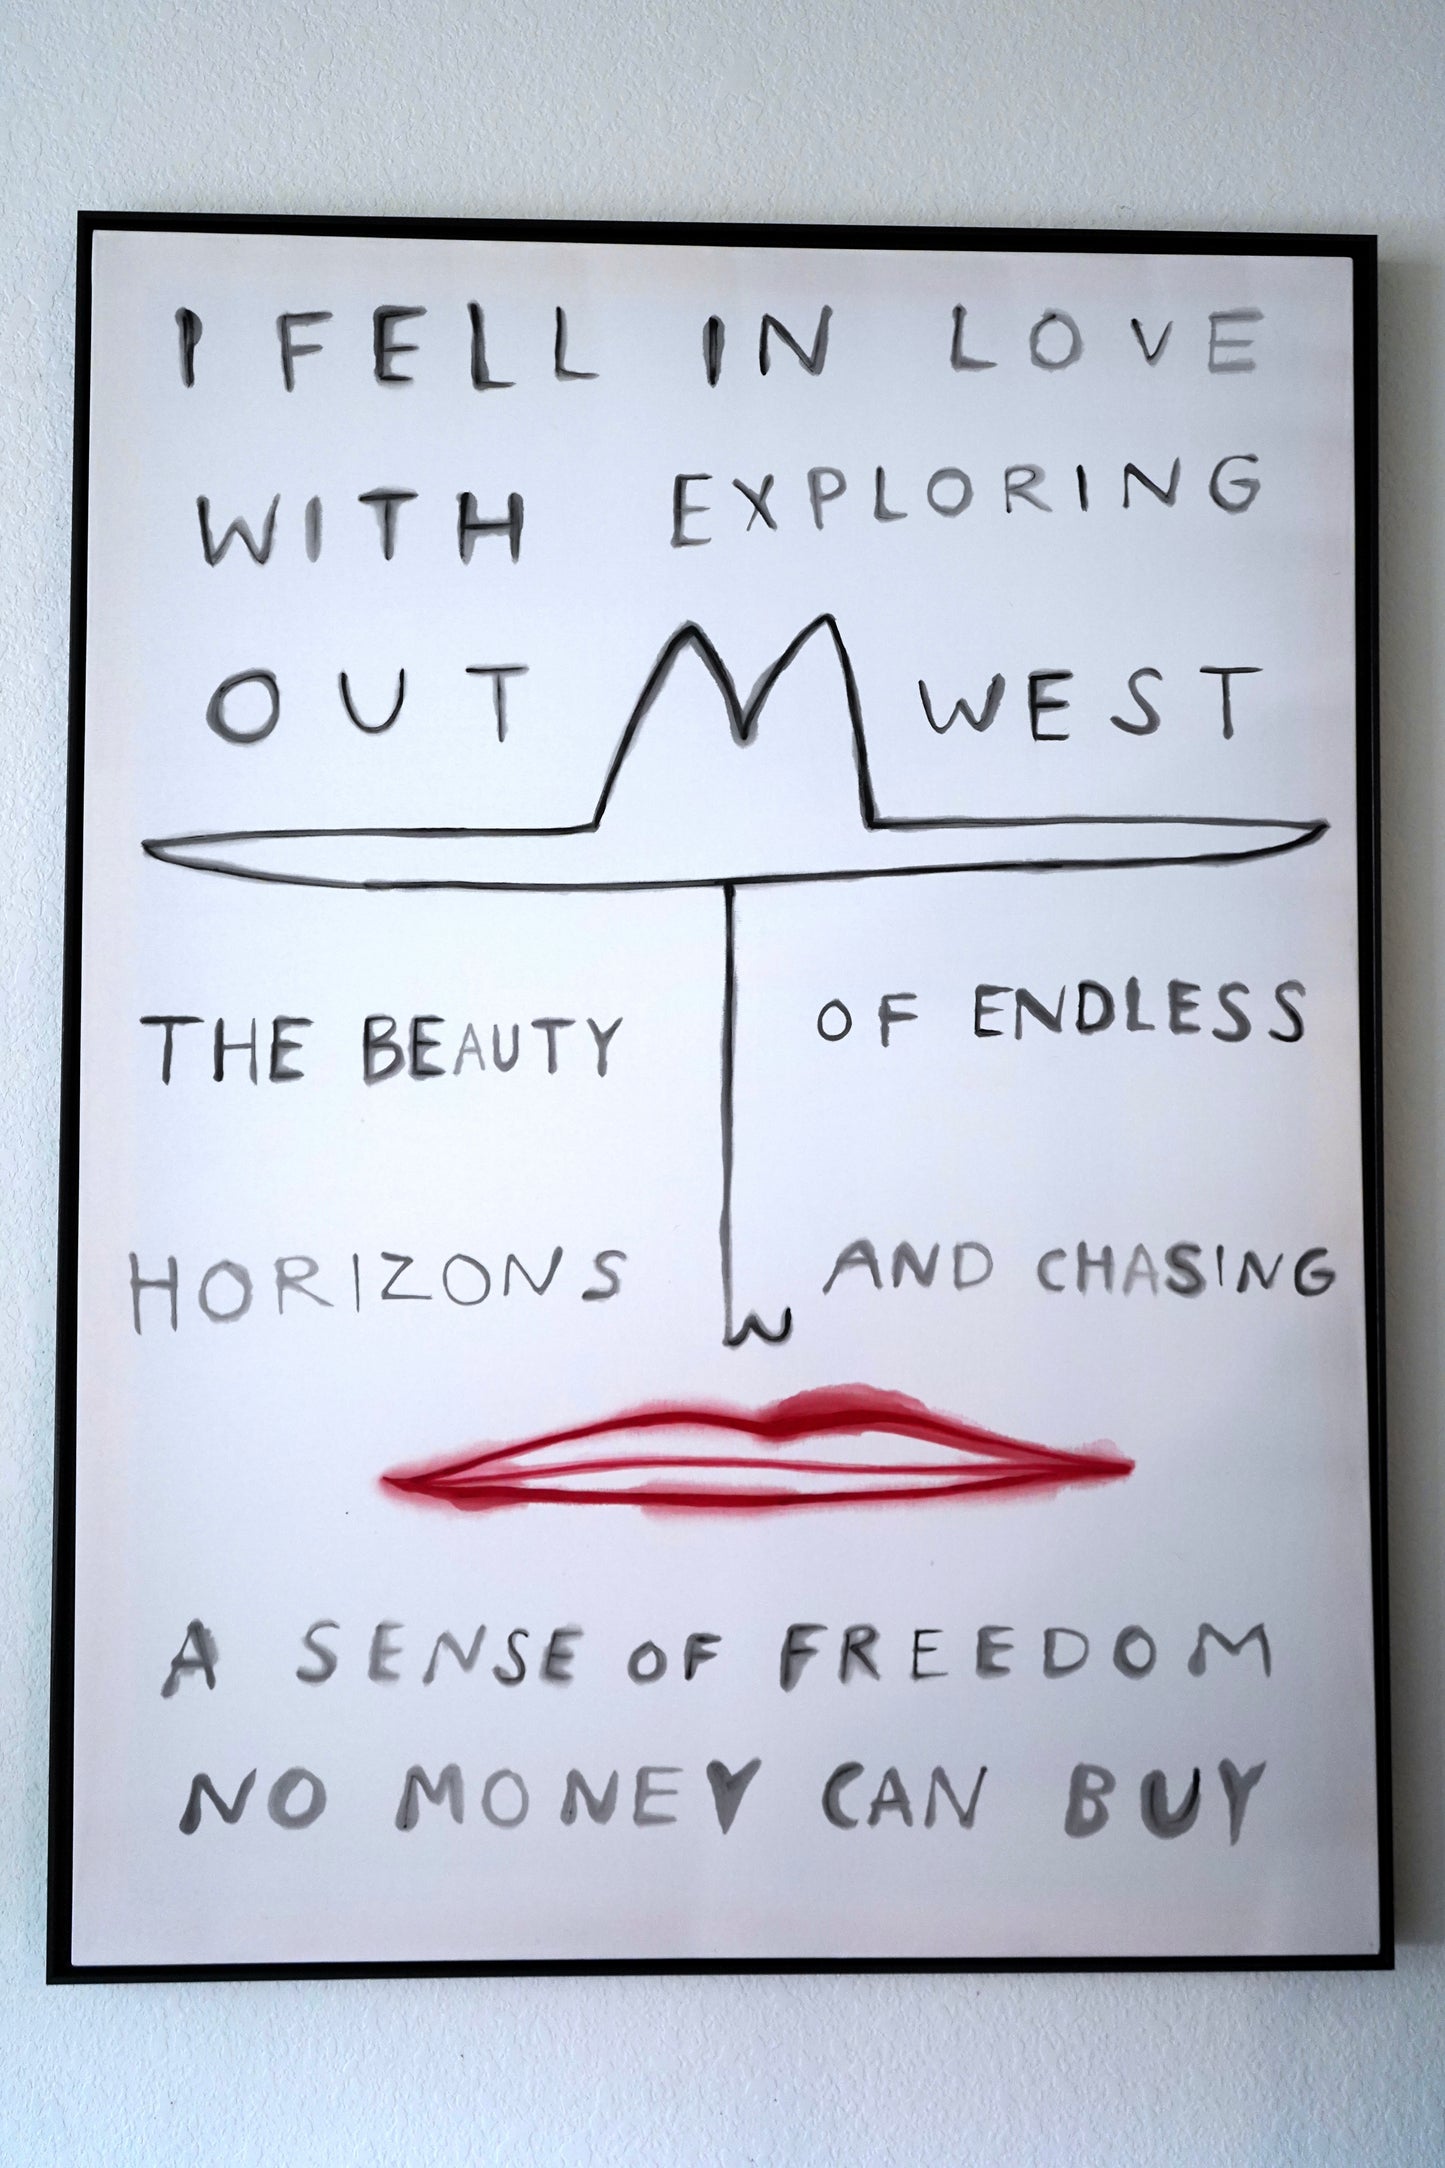 I FELL IN LOVE
WITH EXPLORING
OUT WEST
THE BEAUTY OF ENDLESS
HORIZONS AND CHASING
A SENSE OF FREEDOM
NO MONEY CAN BUY